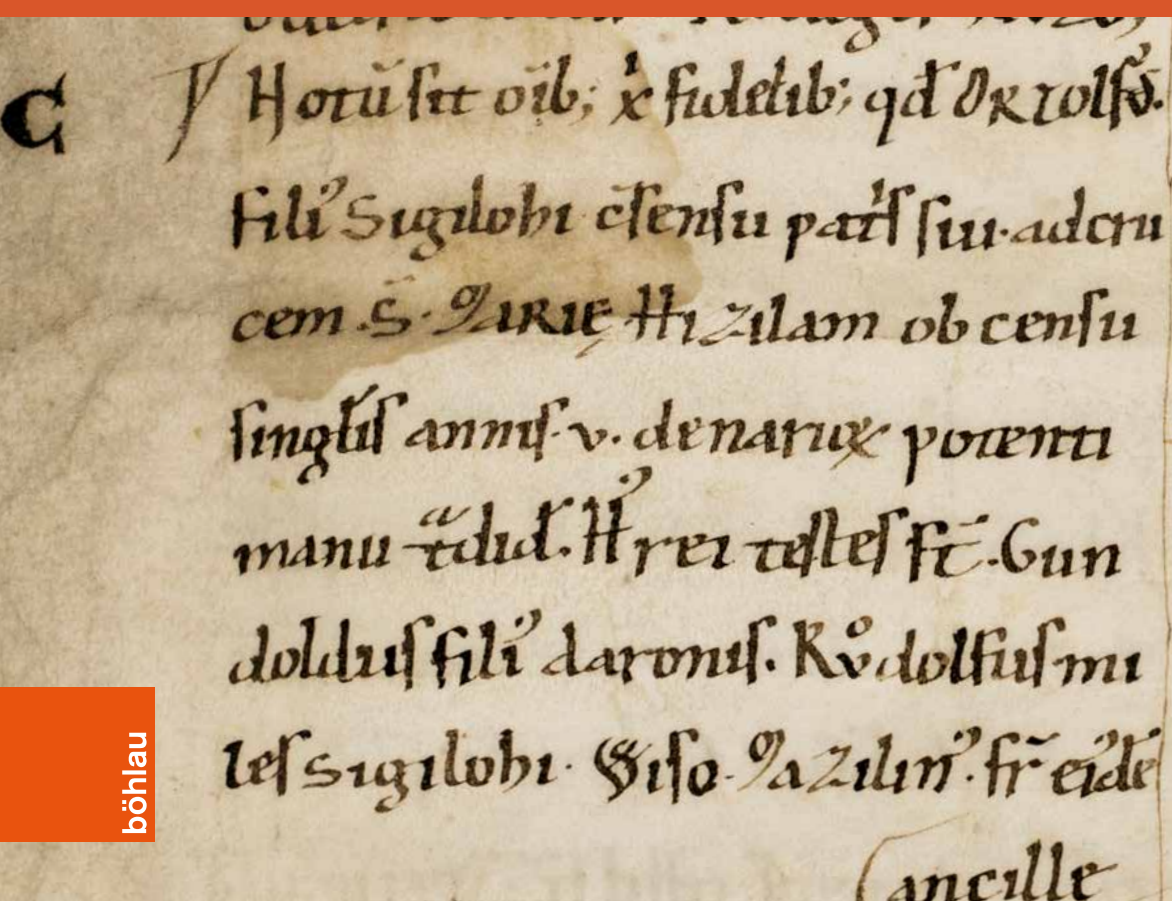 C
Notū sit oīb; x fidelib; qđ ORTOLFꝰ.
filiꝰ Sigilohi c̄sensu patͥs sui· adcru
cem ·S̄· MARIĘ Hizilam ob censu
singlis annis· v· denarioꝝ potenti
manu tͣdid̄. Hꝰ rei testes st̄· Gun
doldus filiꝰ daronis. Růdolfus mi
les sigilohi· Giso· Mazilinꝰ· fr̄ eiꝰdē
ancille
böhlau